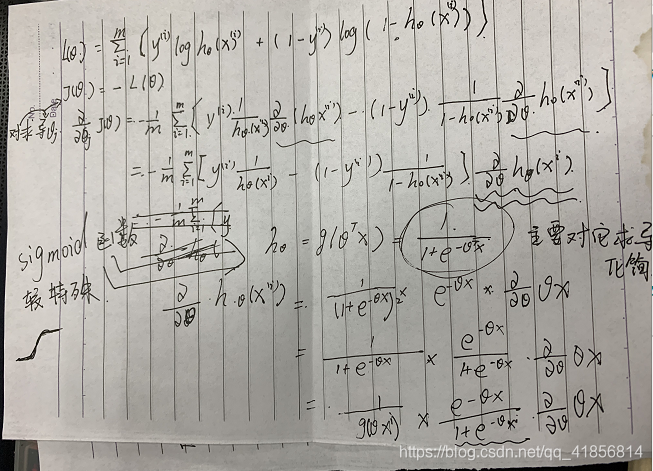 L(θ) = ∑_{i=1}^{m} { y^{(i)} log h_θ(x)^{(i)} + (1-y^{(i)}) log (1-h_θ(x^{(i)})) }
J(θ) = -L(θ)
对求导θ_j ∂/∂θ_j J(θ) = -1/m ∑_{i=1}^{m} { y^{(i)} · 1/h_θ(x^{(i)}) ∂/∂θ (h_θ x^{(i)}) - (1-y^{(i)}) 1/(1-h_θ(x^{(i)})) ∂/∂θ · h_θ(x^{(i)}) }
= -1/m ∑_{i=1}^{m} [ y^{(i)} 1/h_θ(x^{(i)}) - (1-y^{(i)}) 1/(1-h_θ(x^{(i)})) ] · ∂/∂θ h_θ(x^{(i)})
sigmoid
h_θ = g(θ^T x) = 1/(1+e^{-θ^T x}) 主要对它求导
化简
较特殊 ∂/∂θ · h_θ(x^{(i)}) = 1/(1+e^{-θx})^2 × e^{-θx} × ∂/∂θ θx
= 1/(1+e^{-θx}) × e^{-θx}/(1+e^{-θx}) · ∂/∂θ θx
= 1/g(θx^{(i)}) × e^{-θx}/(1+e^{-θx}) · ∂/∂θ θx
https://blog.csdn.net/qq_41856814